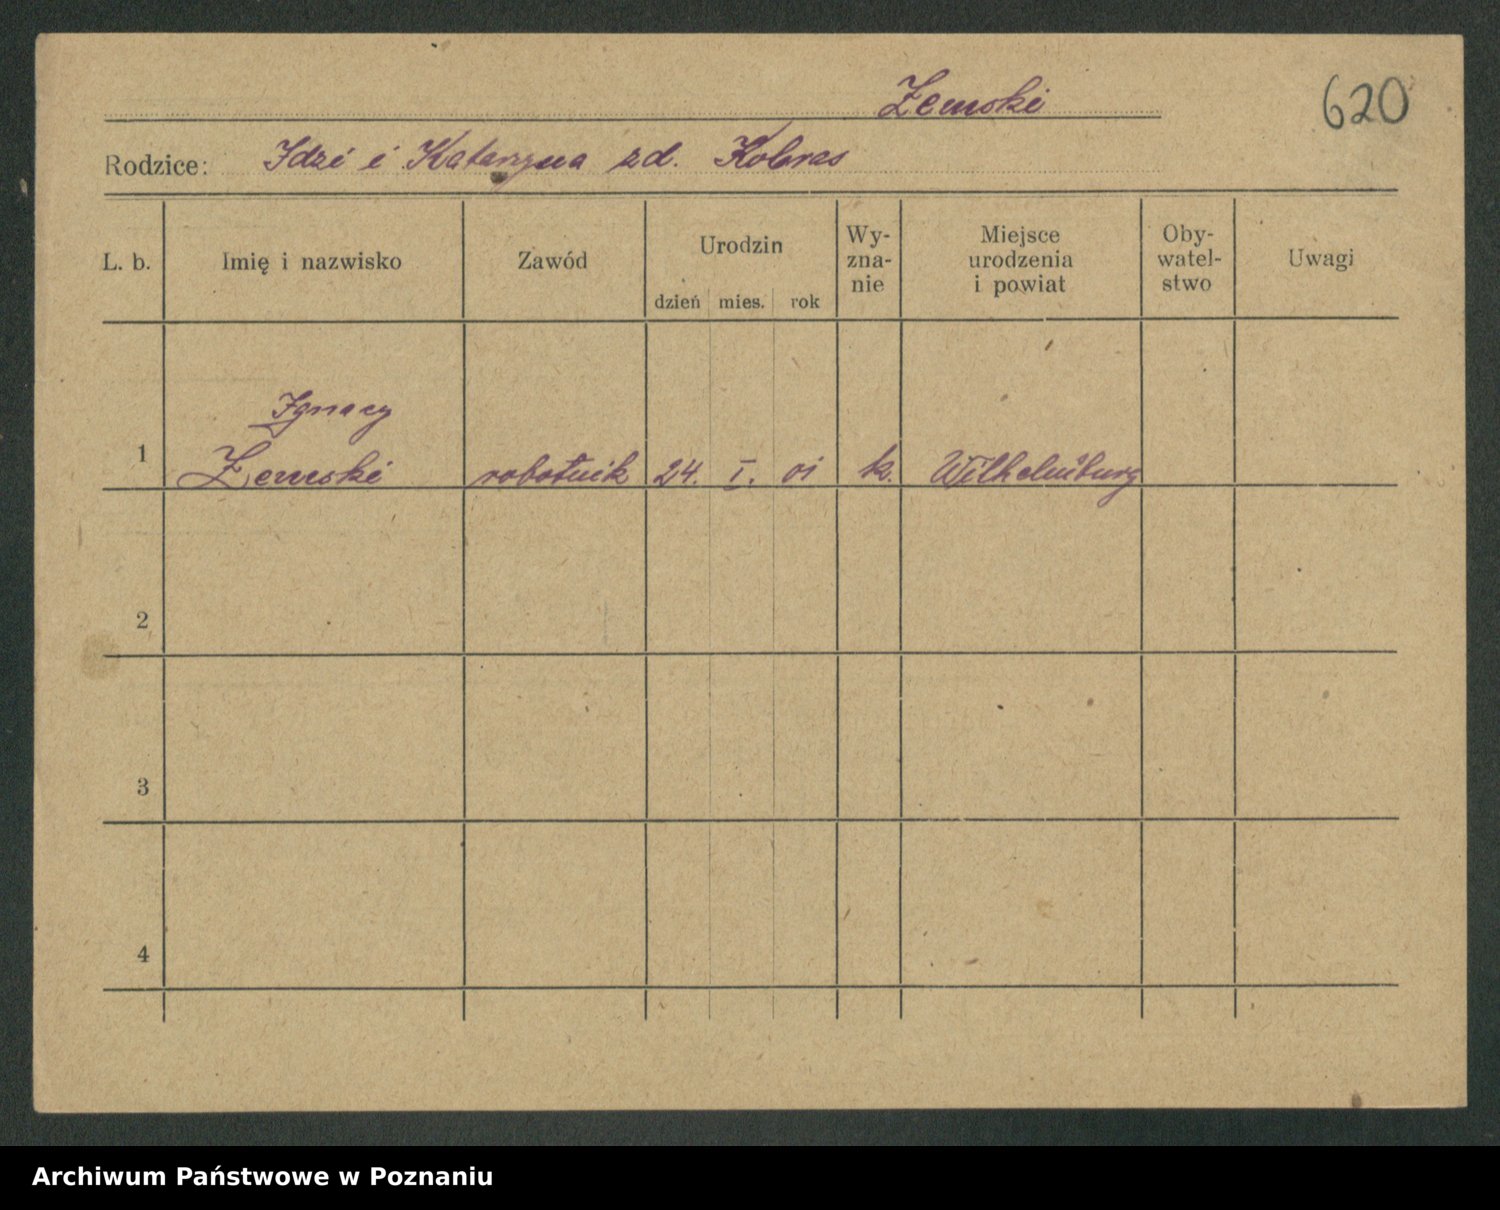 Żemski
620
Rodzice: Idzi i Katarzyna zd. Kobras
L. b.
Imię i nazwisko
Zawód
Urodzin
dzień mies. rok
Wy-
zna-
nie
Miejsce
urodzenia
i powiat
Oby-
watel-
stwo
Uwagi
Ignacy
1 Żemski robotnik 24. I. 01 k. Wilhelmburg
2
3
4
Archiwum Państwowe w Poznaniu